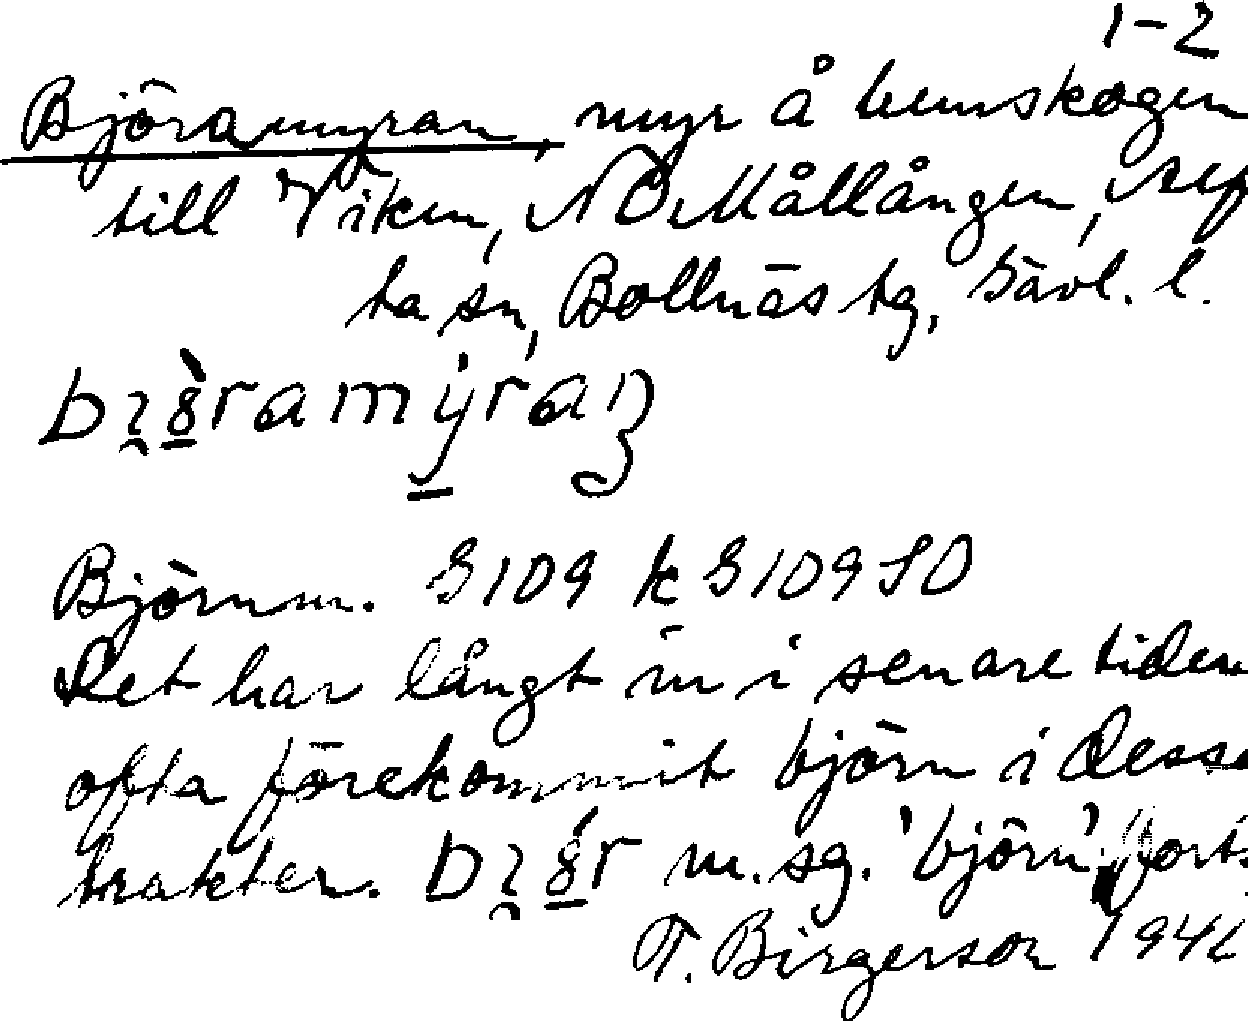 1-2
Björamyran, myr å hemskogen
till Viken, NO Mållången, Alf
ta sn, Bollnäs tg, Gävl. l.
Björnm. G109 k G109SO
Det har långt in i senare tiden
ofta förekommit björn i dessa
trakter. m. sg. 'björn', forts.
T. Birgerson 194